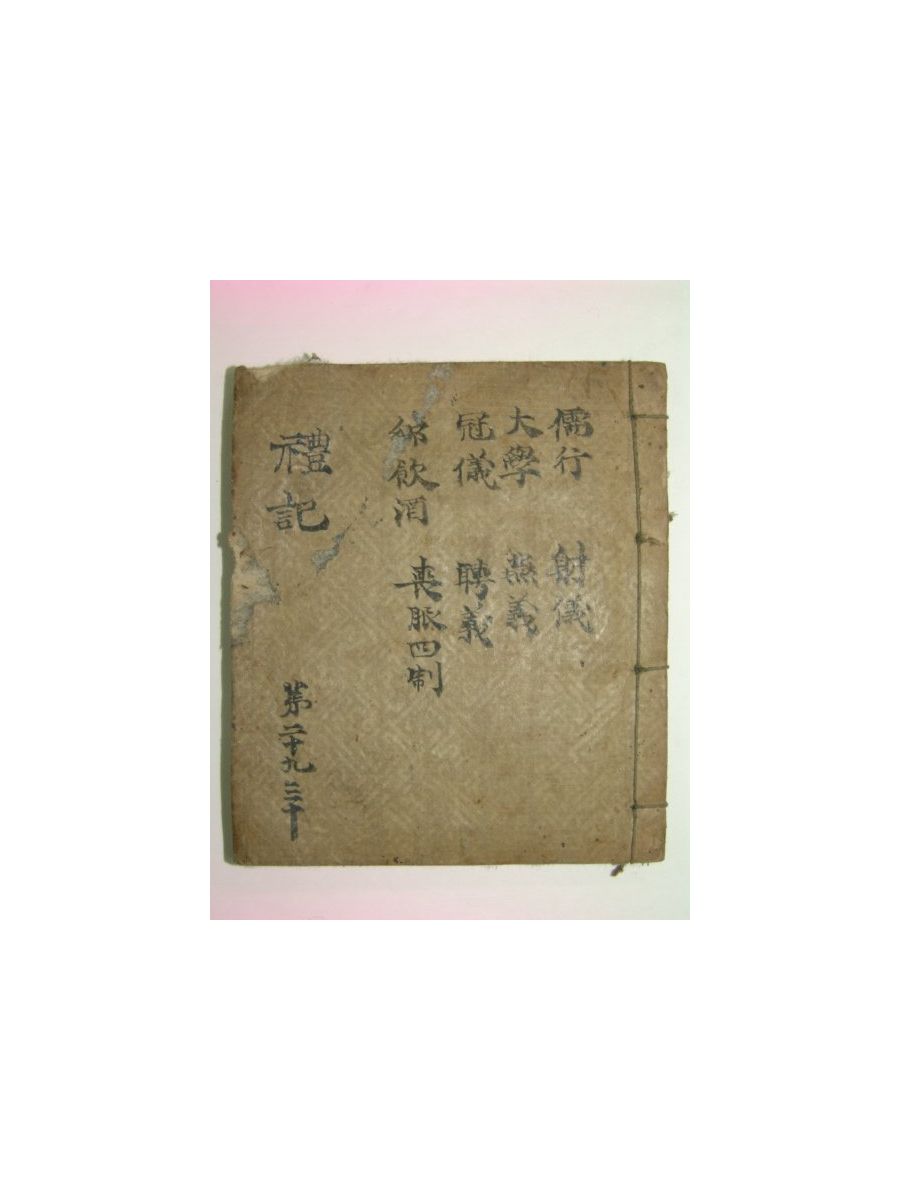 儒行 射儀
大學 燕義
冠儀 聘義
鄉飲酒 喪服四制
禮記
第二十九 三十